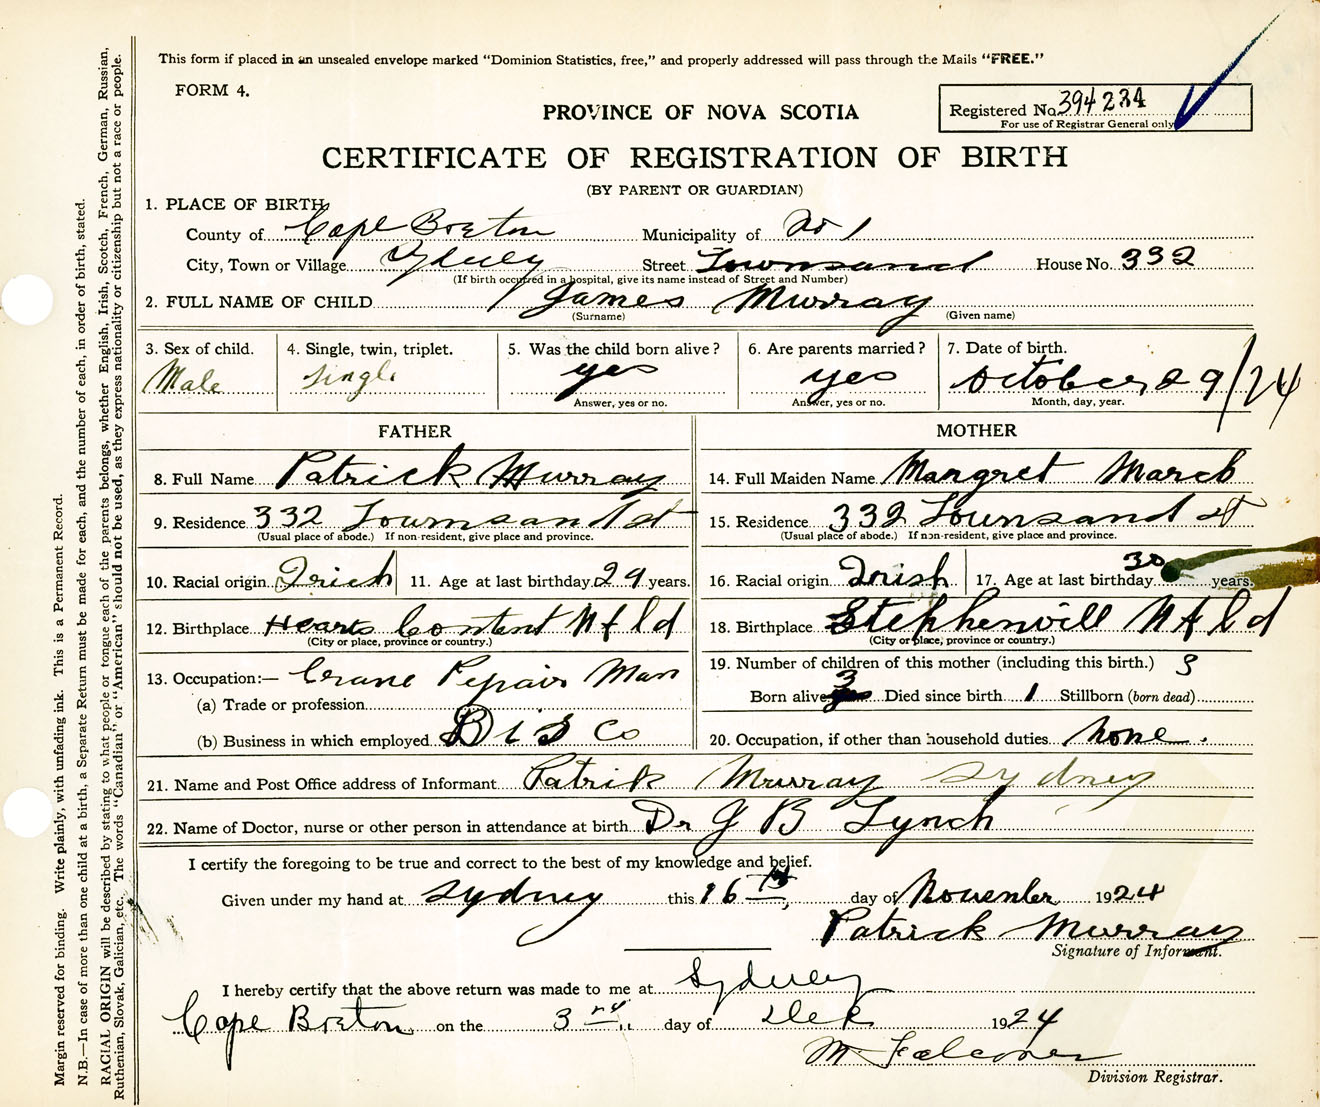 This form if placed in an unsealed envelope marked "Dominion Statistics, free," and properly addressed will pass through the Mails "FREE."
FORM 4.
PROVINCE OF NOVA SCOTIA
Registered No. 394234
For use of Registrar General only
CERTIFICATE OF REGISTRATION OF BIRTH
(BY PARENT OR GUARDIAN)
1. PLACE OF BIRTH
County of Cape Breton Municipality of No 1
City, Town or Village Sydney Street Townsand House No. 332
(If birth occurred in a hospital, give its name instead of Street and Number)
2. FULL NAME OF CHILD James Murray
(Surname) (Given name)
3. Sex of child. 4. Single, twin, triplet. 5. Was the child born alive? 6. Are parents married? 7. Date of birth.
Male single yes yes October 29/24
Answer, yes or no. Answer, yes or no. Month, day, year.
FATHER MOTHER
8. Full Name Patrick Murray 14. Full Maiden Name Margret March
9. Residence 332 Townsand st 15. Residence 332 Townsand st
(Usual place of abode.) If non-resident, give place and province. (Usual place of abode.) If non-resident, give place and province.
10. Racial origin Irish 11. Age at last birthday 29 years. 16. Racial origin Irish 17. Age at last birthday 30 years.
12. Birthplace Hearts Content Nfld 18. Birthplace Stephenvill Nfld
(City or place, province or country.) (City or place, province or country.)
13. Occupation:— Crane Repair Man 19. Number of children of this mother (including this birth.) 3
(a) Trade or profession Born alive 3 Died since birth 1 Stillborn (born dead)
(b) Business in which employed B i S Co 20. Occupation, if other than household duties none.
21. Name and Post Office address of Informant Patrik Murray Sydney
22. Name of Doctor, nurse or other person in attendance at birth Dr J B Lynch
I certify the foregoing to be true and correct to the best of my knowledge and belief.
Given under my hand at Sydney this 16th day of November 1924
Patrick Murray
Signature of Informant.
I hereby certify that the above return was made to me at Sydney
Cape Breton on the 3rd day of Dec 1924
M. Falconer
Division Registrar.
Margin reserved for binding. Write plainly, with unfading ink. This is a Permanent Record.
N.B.—In case of more than one child at a birth, a Separate Return must be made for each, and the number of each, in order of birth, stated.
RACIAL ORIGIN will be described by stating to what people or tongue each of the parents belongs, whether English, Irish, Scotch, French, German, Russian,
Ruthenian, Slovak, Galician, etc. The words "Canadian" or "American" should not be used, as they express nationality or citizenship but not a race or people.